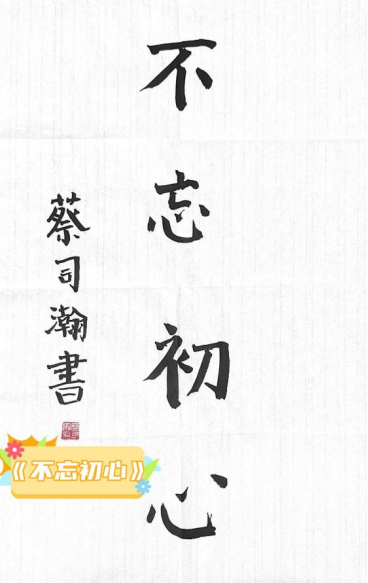 不忘初心
蔡司瀚書
《不忘初心》